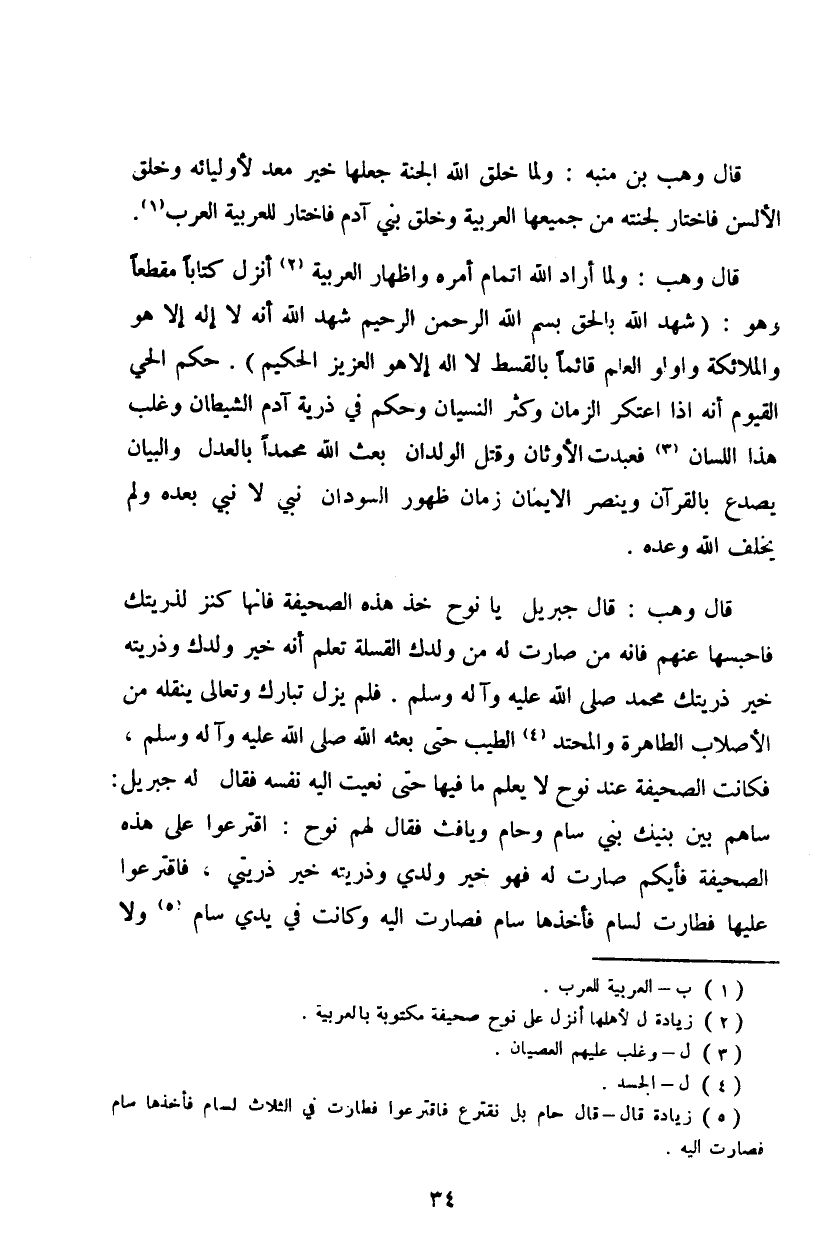 قال وهب بن منبه : ولما خلق الله الجنة جعلها خير معد لأوليائه وخلق
الألسن فاختار لجنته من جميعها العربية وخلق بني آدم فاختار للعربية العرب(١).
قال وهب : ولما أراد الله اتمام أمره واظهار العربية (٢) أنزل كتاباً مقطعاً
وهو : ( شهد الله بالحق بسم الله الرحمن الرحيم شهد الله أنه لا إله إلا هو
والملائكة واولو العلم قائماً بالقسط لا اله إلاهو العزيز الحكيم ) . حكم الحي
القيوم أنه اذا اعتكر الزمان وكثر النسيان وحكم في ذرية آدم الشيطان وغلب
هذا اللسان (٣) فعبدت الأوثان وقتل الولدان بعث الله محمداً بالعدل والبيان
يصدع بالقرآن وينصر الايمان زمان ظهور السودان نبي لا نبي بعده ولم
يخلف الله وعده .
قال وهب : قال جبريل يا نوح خذ هذه الصحيفة فانها كنز لذريتك
فاحبسها عنهم فانه من صارت له من ولدك القسلة تعلم أنه خير ولدك وذريته
خير ذريتك محمد صلى الله عليه وآله وسلم . فلم يزل تبارك وتعالى ينقله من
الأصلاب الطاهرة والمحتد (٤) الطيب حتى بعثه الله صلى الله عليه وآله وسلم ،
فكانت الصحيفة عند نوح لا يعلم ما فيها حتى نعيت اليه نفسه فقال له جبريل:
ساهم بين بنيك بني سام وحام ويافث فقال لهم نوح : اقترعوا على هذه
الصحيفة فأيكم صارت له فهو خير ولدي وذريته خير ذريتي ، فاقترعوا
عليها فطارت لسام فأخذها سام فصارت اليه وكانت في يدي سام (٥) ولا
( ١ ) ب – العربية للعرب .
( ٢ ) زيادة ل لأهلها أنزل على نوح صحيفة مكتوبة بالعربية .
( ٣ ) ل – وغلب عليهم العصيان .
( ٤ ) ل – الجسد .
( ٥ ) زيادة قال – قال حام بل نقترع فاقترعوا فطارت في الثلاث لسام فأخذها سام
فصارت اليه .
٣٤